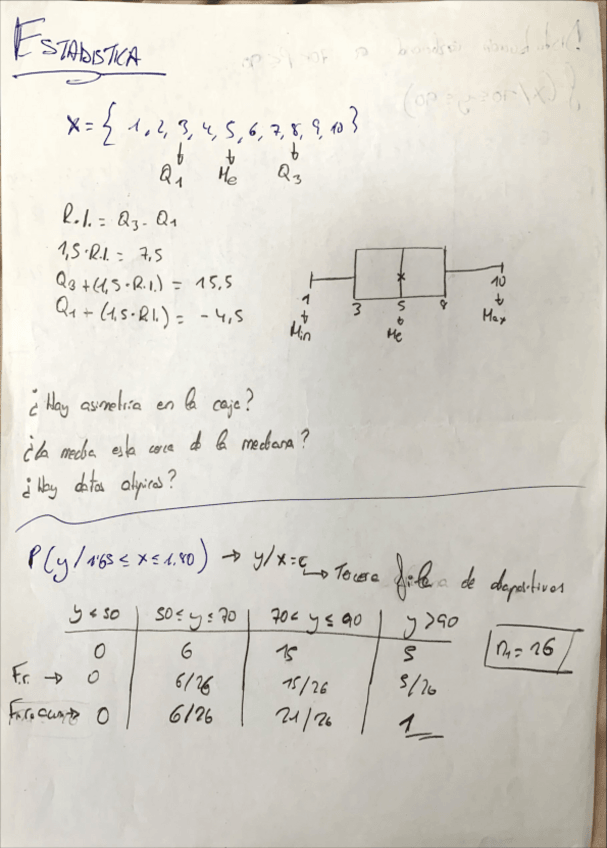 ESTADISTICA
X = { 1, 2, 3, 4, 5, 6, 7, 8, 9, 10 }
Q1 Me Q3
R.I. = Q3 - Q1
1,5·R.I. = 7,5
Q3 + (1,5·R.I.) = 15,5
Q1 - (1,5·R.I.) = -4,5
1 3 5 8 10
Min Me Max
¿Hay asimetria en la caja?
¿La media esta cerca de la mediana?
¿Hay datos atipicos?
P(y / 1'65 ≤ x ≤ 1.80) → y/x=c → Tercera fila de diapositivas
y < 50 | 50 ≤ y ≤ 70 | 70 < y ≤ 90 | y > 90
0 | 6 | 15 | 5 n1 = 26
F.r. → 0 | 6/26 | 15/26 | 5/26
0 | 6/26 | 21/26 | 1